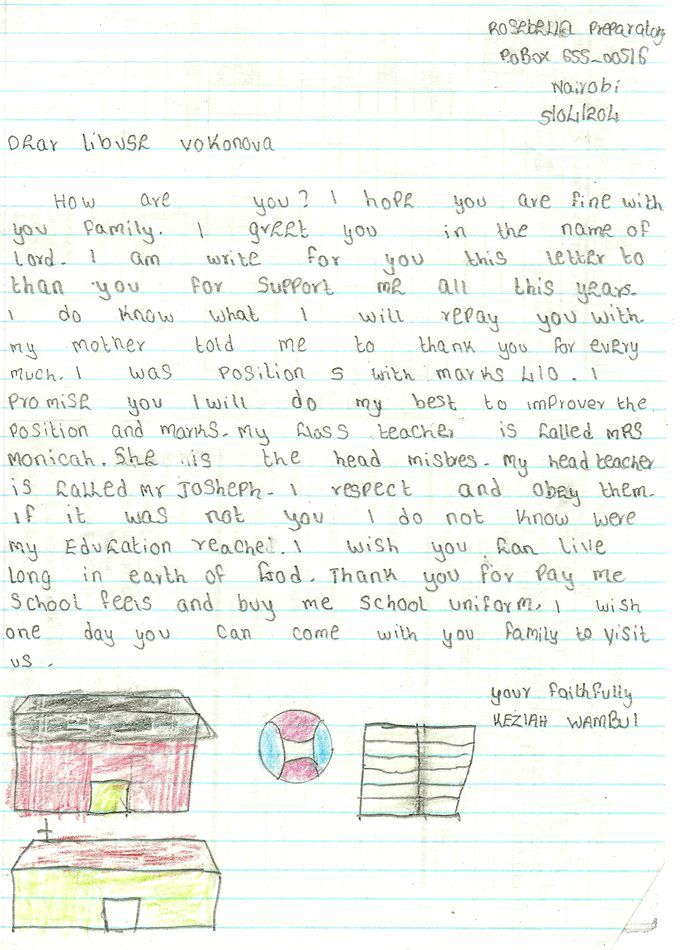 Rosebella Preparatory
PoBox 655-00516
Nairobi
5/04/204
Dear Libuse Vokonova
How are you? I hope you are fine with
you family. I greet you in the name of
Lord. I am write for you this letter to
than you for support me all this years.
I do know what I will repay you with
my mother told me to thank you for every
much. I was position 5 with marks 410. I
promise you I will do my best to improver the
position and marks. My class teacher is called MRS
monicah. She is the head mistres. my head teacher
is called Mr Josheph. I respect and obey them.
if it was not you I do not know were
my Education reached. I wish you can live
long in earth of God. Thank you for pay me
school feeis and buy me school uniform. I wish
one day you can come with you family to visit
us.
your faithfully
KEZIAH WAMBUI